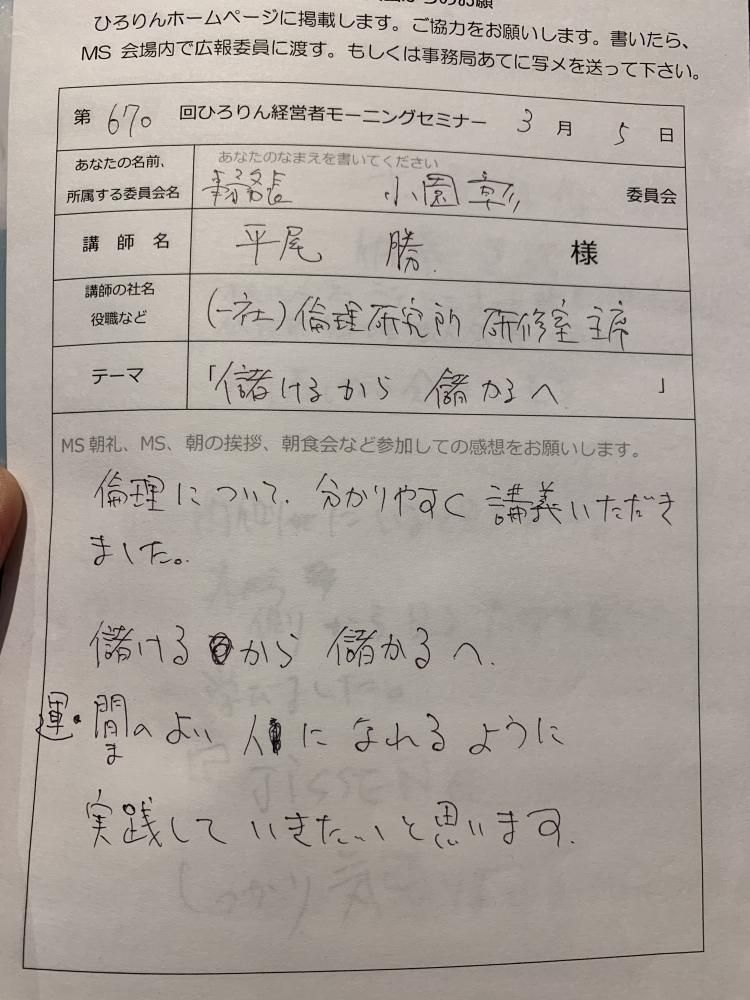 のお願
ひろりんホームページに掲載します。ご協力をお願いします。書いたら、
MS 会場内で広報委員に渡す。もしくは事務局あてに写メを送って下さい。
第 670 回ひろりん経営者モーニングセミナー 3 月 5 日
あなたの名前、
所属する委員会名
あなたのなまえを書いてください
事務長 小園 委員会
講師名 平尾 勝 様
講師の社名
役職など
(一社)倫理研究所 研修室 主席
テーマ 「儲けるから 儲かるへ 」
MS朝礼、MS、朝の挨拶、朝食会など参加しての感想をお願いします。
倫理について、分かりやすく講義いただき
ました。
儲けるから 儲かるへ.
運・間のよい人になれるように
ま
実践していきたいと思います.